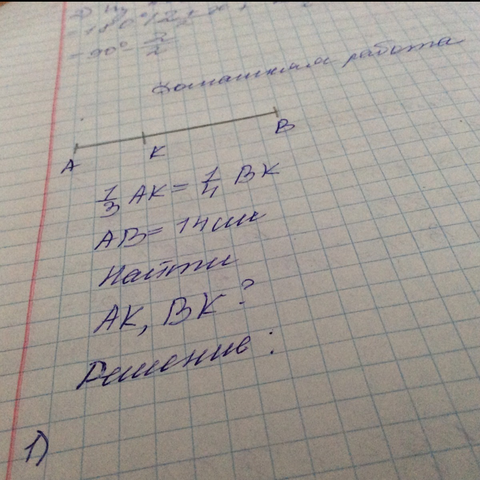 Домашняя работа
A K B
1/3 AK = 1/4 BK
AB = 14 см
Найти
AK, BK ?
Решение :
1)